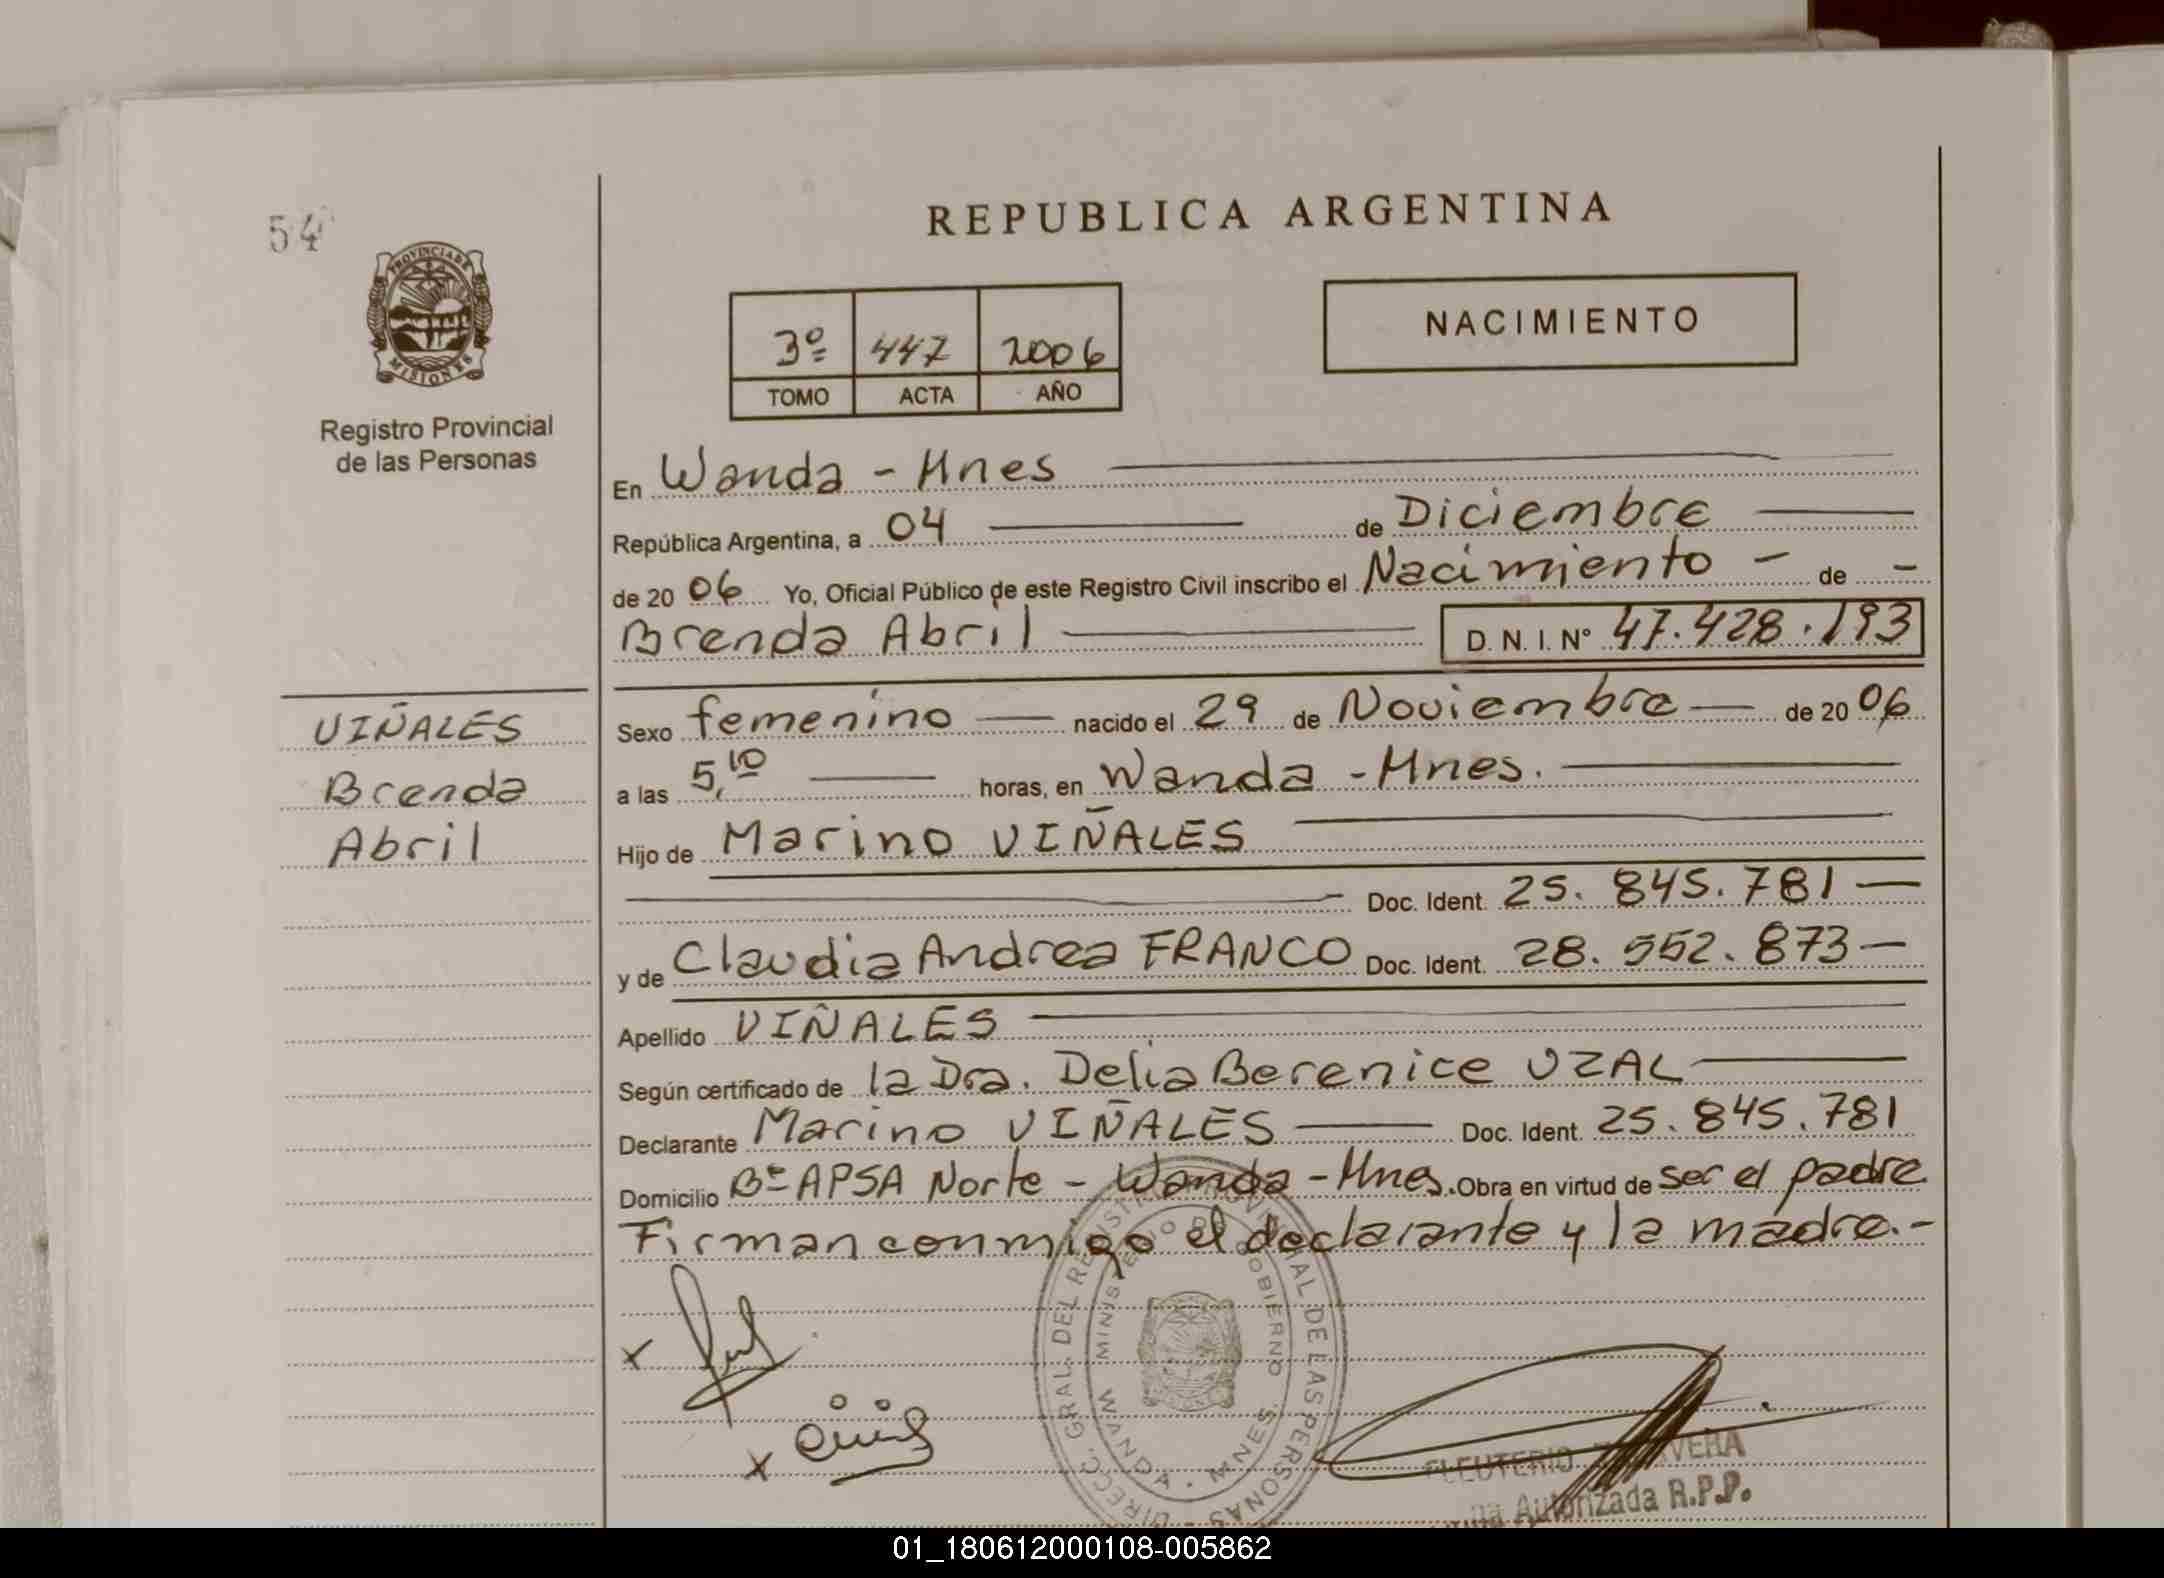 54
PROVINCIA DE
MISIONES
Registro Provincial
de las Personas
REPUBLICA ARGENTINA
3º 447 2006
TOMO ACTA AÑO
NACIMIENTO
En Wanda - Mnes
República Argentina, a 04 de Diciembre
de 2006 Yo, Oficial Público de este Registro Civil inscribo el Nacimiento - de -
Brenda Abril D. N. I. Nº 47.428.193
VIÑALES
Brenda
Abril
Sexo femenino nacido el 29 de Noviembre de 2006
a las 5,10 horas, en Wanda - Mnes.
Hijo de Marino VIÑALES
Doc. Ident. 25.845.781
y de Claudia Andrea FRANCO Doc. Ident. 28.552.873
Apellido VIÑALES
Según certificado de la Dra. Delia Berenice UZAL
Declarante Marino VIÑALES Doc. Ident. 25.845.781
Domicilio Bº APSA Norte - Wanda - Mnes. Obra en virtud de ser el padre
Firman conmigo el declarante y la madre.-
x
x
DIRECC. GRAL. DEL REGISTRO PROVINCIAL DE LAS PERSONAS
MINISTERIO DE GOBIERNO
WANDA - MNES.
ELEUTERIO
Autorizada R.P.P.
01_180612000108-005862